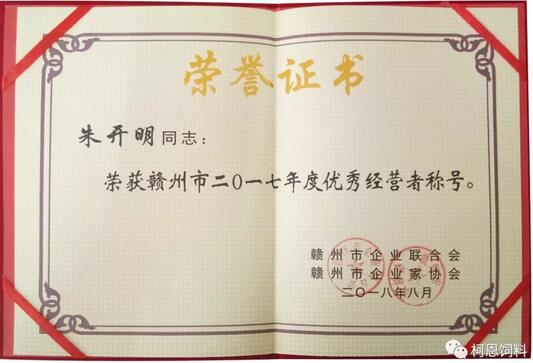 荣誉证书
朱开明同志：
荣获赣州市二〇一七年度优秀经营者称号。
赣州市企业联合会
赣州市企业家协会
二〇一八年八月
柯恩饲料